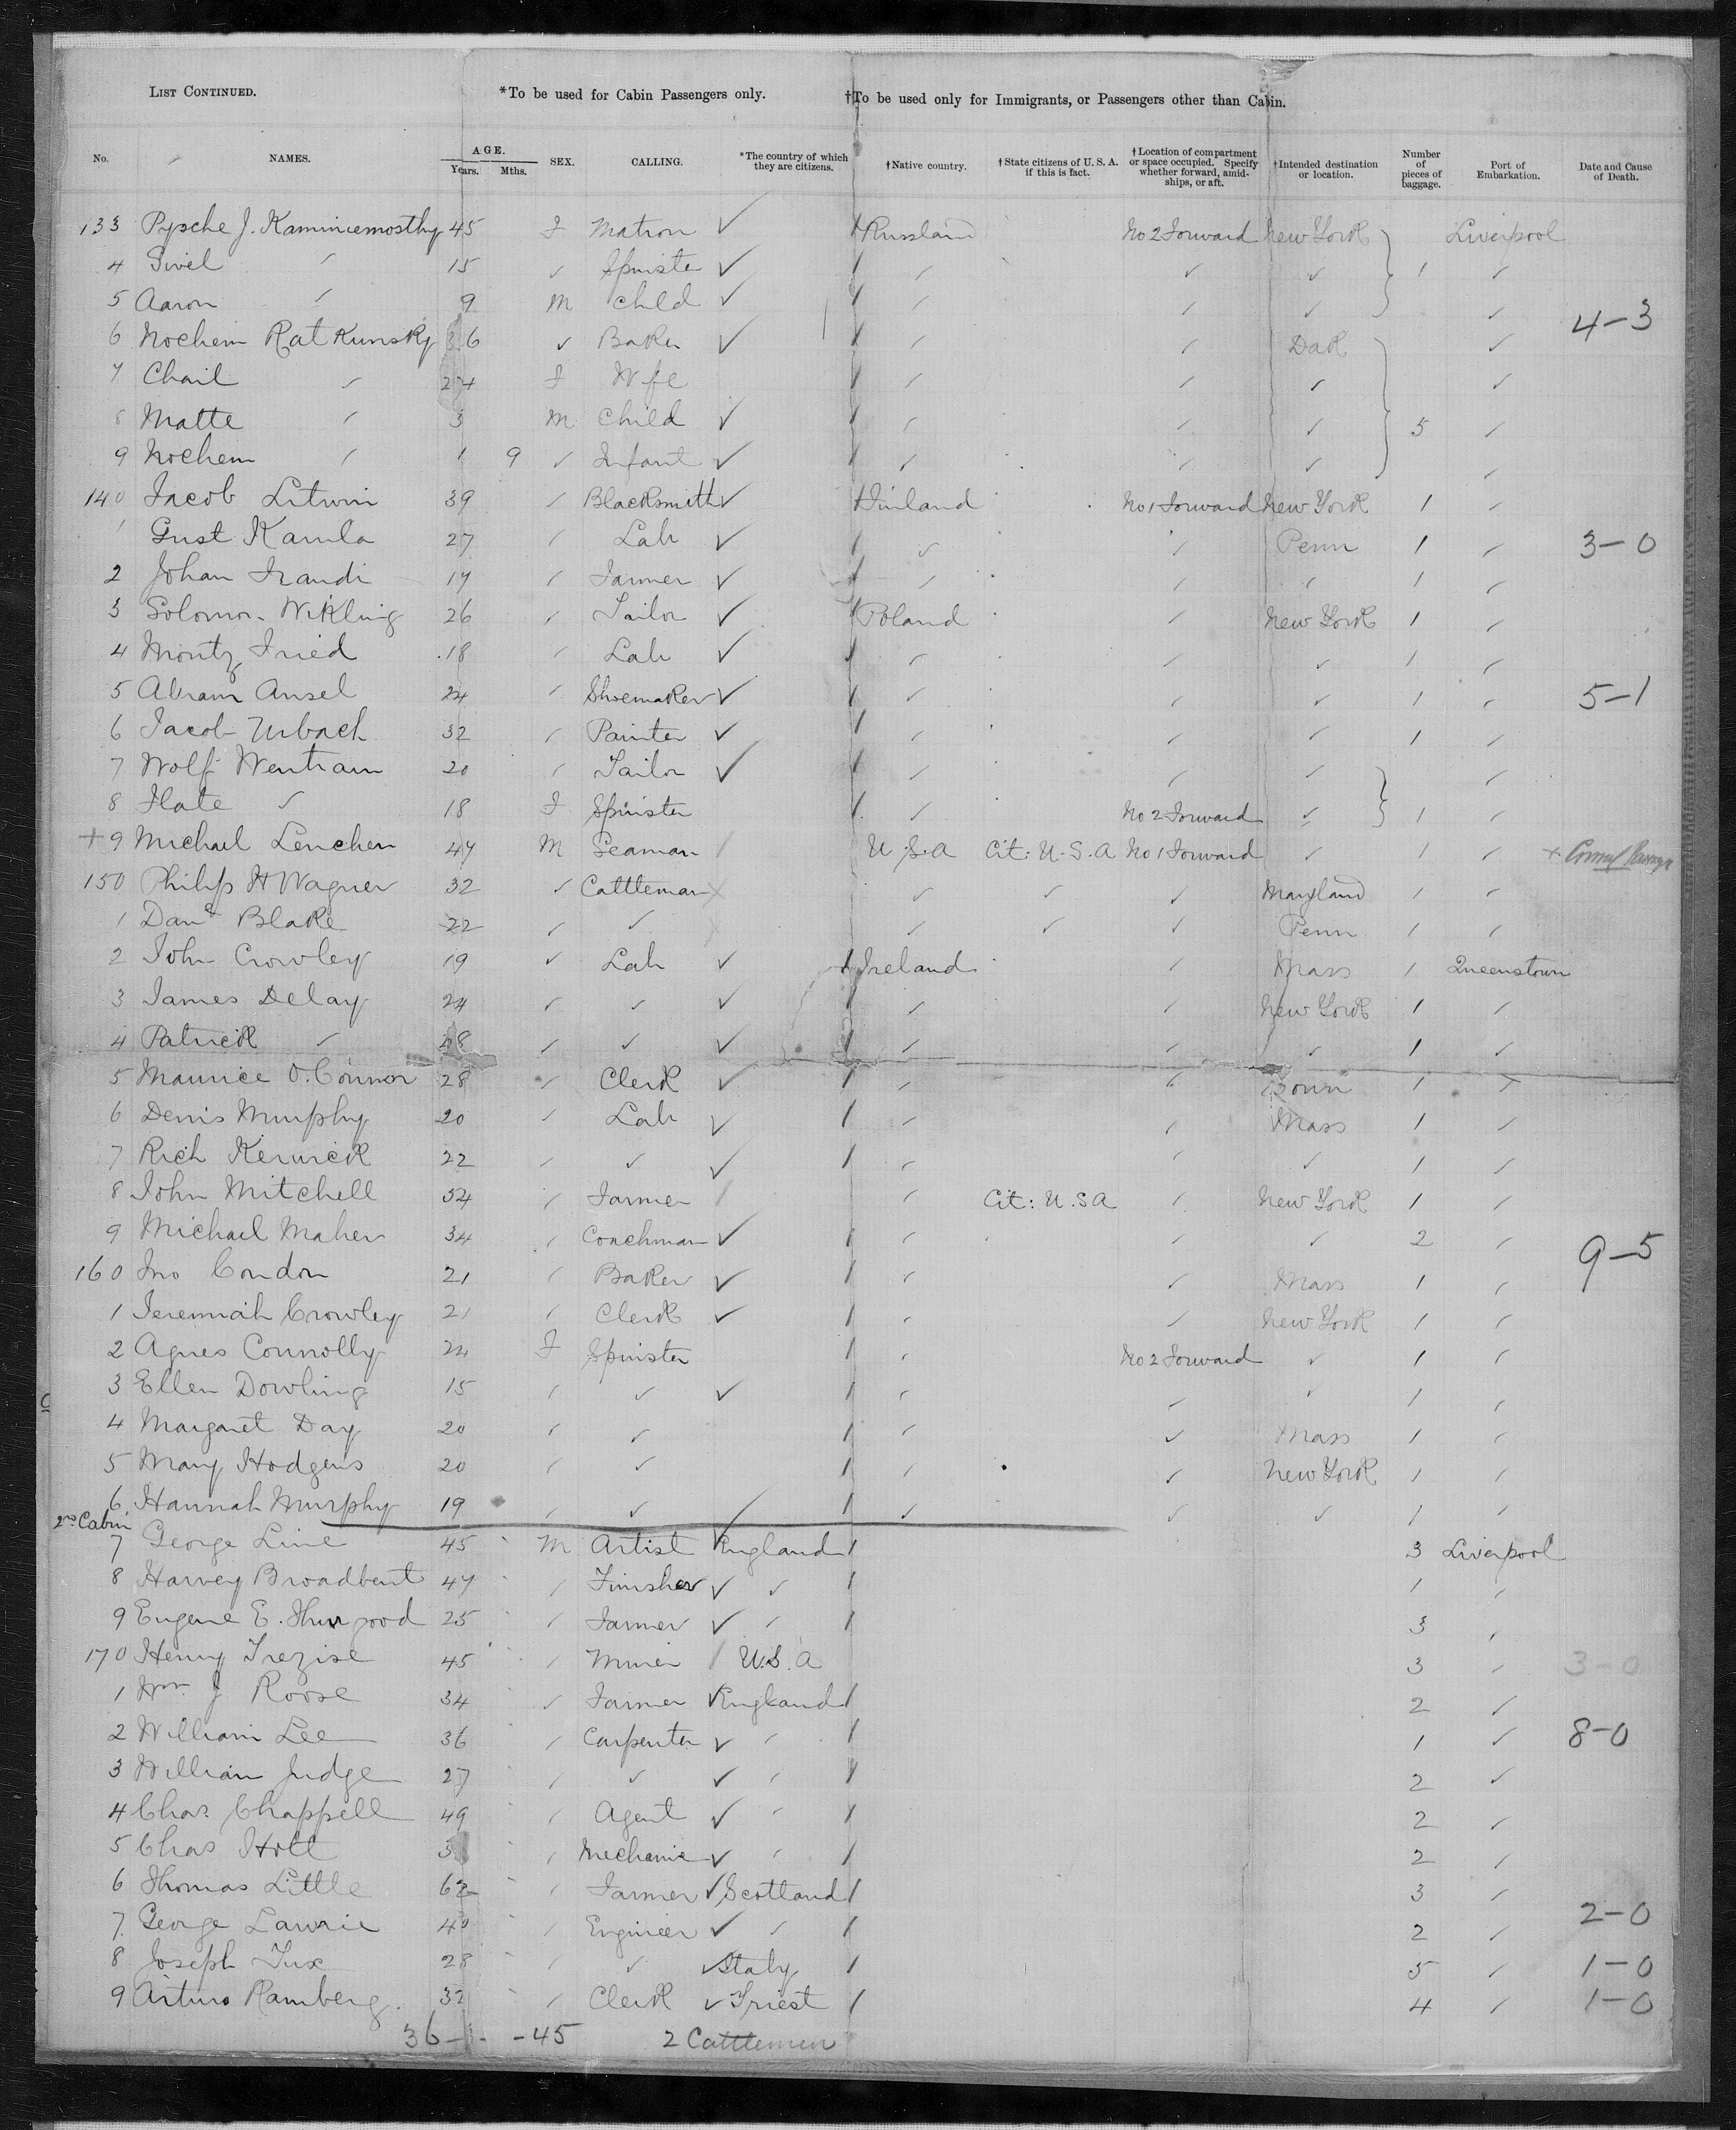 LIST CONTINUED. *To be used for Cabin Passengers only. †To be used only for Immigrants, or Passengers other than Cabin.
No. NAMES. AGE. Years. Mths. SEX. CALLING. *The country of which they are citizens. †Native country. †State citizens of U. S. A. if this is fact. †Location of compartment or space occupied. Specify whether forward, amid-ships, or aft. †Intended destination or location. Number of pieces of baggage. Port of Embarkation. Date and Cause of Death.
133 Pysche J. Kaminiemosthy 45 F Matron ✓ Russland No 2 Forward New York Liverpool
4 Siwel ✓ 15 ✓ Spinster ✓ ✓ ✓ ✓ 1 ✓
5 Aaron ✓ 9 M Child ✓ ✓ ✓ ✓ ✓ 4-3
6 Nochem Ratkunsky 36 ✓ Baker ✓ ✓ ✓ Dak ✓
7 Chail ✓ 24 F Wife ✓ ✓ ✓ ✓
8 Matte ✓ 3 M Child ✓ ✓ ✓ ✓ 5 ✓
9 Nochem ✓ 1 9 ✓ Infant ✓ ✓ ✓ ✓ ✓
140 Jacob Litwin 39 ✓ Blacksmith ✓ Finland No 1 Forward New York 1 ✓
1 Gust Kamla 27 ✓ Lab ✓ ✓ ✓ Penn 1 ✓ 3-0
2 Johan Frandi 17 ✓ Farmer ✓ ✓ ✓ ✓ 1 ✓
3 Solomon Wikling 26 ✓ Tailor ✓ Poland ✓ New York 1 ✓
4 Moritz Fried 18 ✓ Lab ✓ ✓ ✓ ✓ 1 ✓
5 Abram Ansel 24 ✓ Shoemaker ✓ ✓ ✓ ✓ 1 ✓ 5-1
6 Jacob Urbach 32 ✓ Painter ✓ ✓ ✓ ✓ 1 ✓
7 Wolf Wentram 20 ✓ Tailor ✓ ✓ ✓ ✓ ✓
8 Flate ✓ 18 F Spinster ✓ No 2 Forward ✓ 1 ✓
+9 Michael Lenehen 47 M Seaman U.S.A Cit: U.S.A No 1 Forward ✓ 1 ✓ +
150 Philip H Wagner 32 ✓ Cattleman ✓ ✓ ✓ Maryland 1 ✓
1 Danl Blake 22 ✓ ✓ ✓ ✓ ✓ Penn 1 ✓
2 John Crowley 19 ✓ Lab ✓ Ireland ✓ Mass 1 Queenstown
3 James Delay 24 ✓ ✓ ✓ ✓ ✓ New York 1 ✓
4 Patrick ✓ 28 ✓ ✓ ✓ ✓ ✓ ✓ 1 ✓
5 Maurice O.Connor 28 ✓ Clerk ✓ ✓ ✓ Conn 1 ✓
6 Denis Murphy 20 ✓ Lab ✓ ✓ ✓ Mass 1 ✓
7 Rich Kerwick 22 ✓ ✓ ✓ ✓ ✓ ✓ 1 ✓
8 John Mitchell 54 ✓ Farmer ✓ Cit: U.S A ✓ New York 1 ✓
9 Michael Maher 34 ✓ Coachman ✓ ✓ ✓ ✓ 2 ✓ 9-5
160 Jno Condon 21 ✓ Baker ✓ ✓ ✓ Mass 1 ✓
1 Jeremiah Crowley 21 ✓ Clerk ✓ ✓ ✓ New York 1 ✓
2 Agnes Connolly 24 F Spinster ✓ No 2 Forward ✓ 1 ✓
3 Ellen Dowling 15 ✓ ✓ ✓ ✓ ✓ ✓ 1 ✓
4 Margaret Day 20 ✓ ✓ ✓ ✓ Mass 1 ✓
5 Mary Hodgens 20 ✓ ✓ ✓ ✓ New York 1 ✓
6 Hannah Murphy 19 ✓ ✓ ✓ ✓ ✓ ✓ 1 ✓
2nd Cabin
7 George Line 45 M Artist ✓ England 3 Liverpool
8 Harvey Broadbent 47 ✓ Finisher ✓ ✓ 1 ✓
9 Eugene E. Thurgood 25 ✓ Farmer ✓ ✓ 3 ✓
170 Henry Trezise 45 ✓ Miner U.S.A 3 ✓ 3-0
1 Wm J Roose 34 ✓ Farmer ✓ England 2 ✓
2 William Lee 36 ✓ Carpenter ✓ ✓ 1 ✓ 8-0
3 William Judge 27 ✓ ✓ ✓ ✓ 2 ✓
4 Chas. Chappell 49 ✓ Agent ✓ ✓ 2 ✓
5 Chas Holt ✓ Mechanic ✓ ✓ 2 ✓
6 Thomas Little 62 ✓ Farmer ✓ Scotland 3 ✓
7 George Lawrie 40 ✓ Engineer ✓ ✓ 2 ✓ 2-0
8 Joseph Tux 28 ✓ ✓ ✓ Italy 5 ✓ 1-0
9 Arturo Ramberg. 32 ✓ Clerk ✓ Triest 4 ✓ 1-0
36- -45 2 Cattlemen